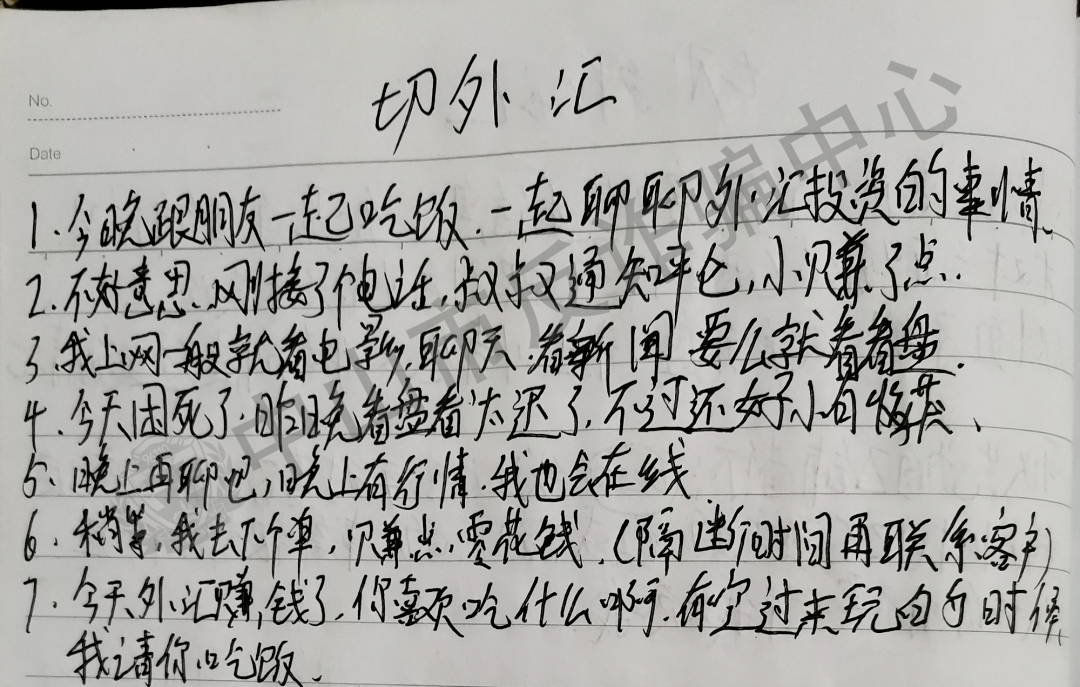 No.
切外汇
Date
1.今晚跟朋友一起吃饭.一起聊聊外汇投资的事情.
2.不好意思.刚接了个电话,叔叔通知平仓,小赚了点.
3.我上网一般就看电影,聊天.看新闻 要么就看看盘.
4.今天困死了.昨晚看盘看太迟了.不过还好小有收获、
5.晚上再聊吧,晚上有行情.我也会在线.
6.稍等,我去下个单,赚点零花钱.(隔断时间再联系客户)
7.今天外汇赚钱了.你喜欢吃什么啊.有空过来玩的时候
我请你吃饭.
中山市反诈骗中心